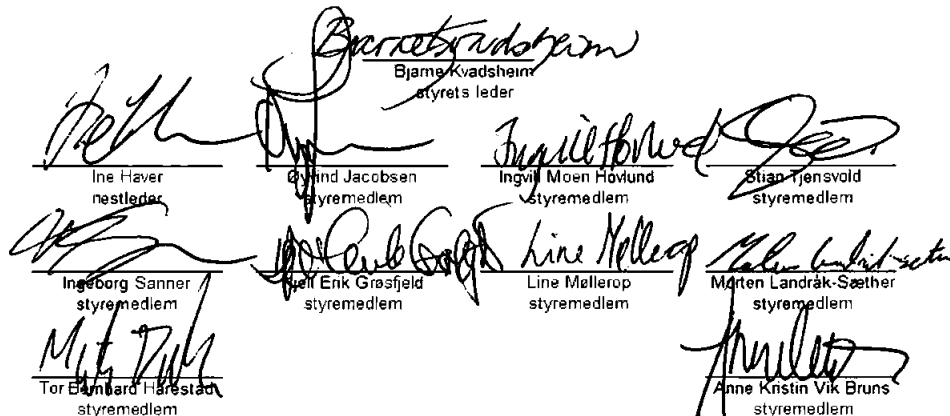 Bjarne Kvadsheim
Bjarne Kvadsheim
styrets leder
Ine Haver
nestleder
Øyvind Jacobsen
styremedlem
Ingvill Hovlund
Ingvill Moen Hovlund
styremedlem
Stian Tjensvold
styremedlem
Ingeborg Sanner
styremedlem
Kjell Erik Grøsfjeld
styremedlem
Line Møllerop
Line Møllerop
styremedlem
Morten Landråk-Sæther
styremedlem
Tor Bernhard Harestad
styremedlem
Anne Kristin Vik Bruns
styremedlem